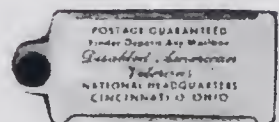 POSTAGE GUARANTEED
Finder Deposit Any Mailbox
Disabled American
Veterans
NATIONAL HEADQUARTERS
CINCINNATI O OHIO